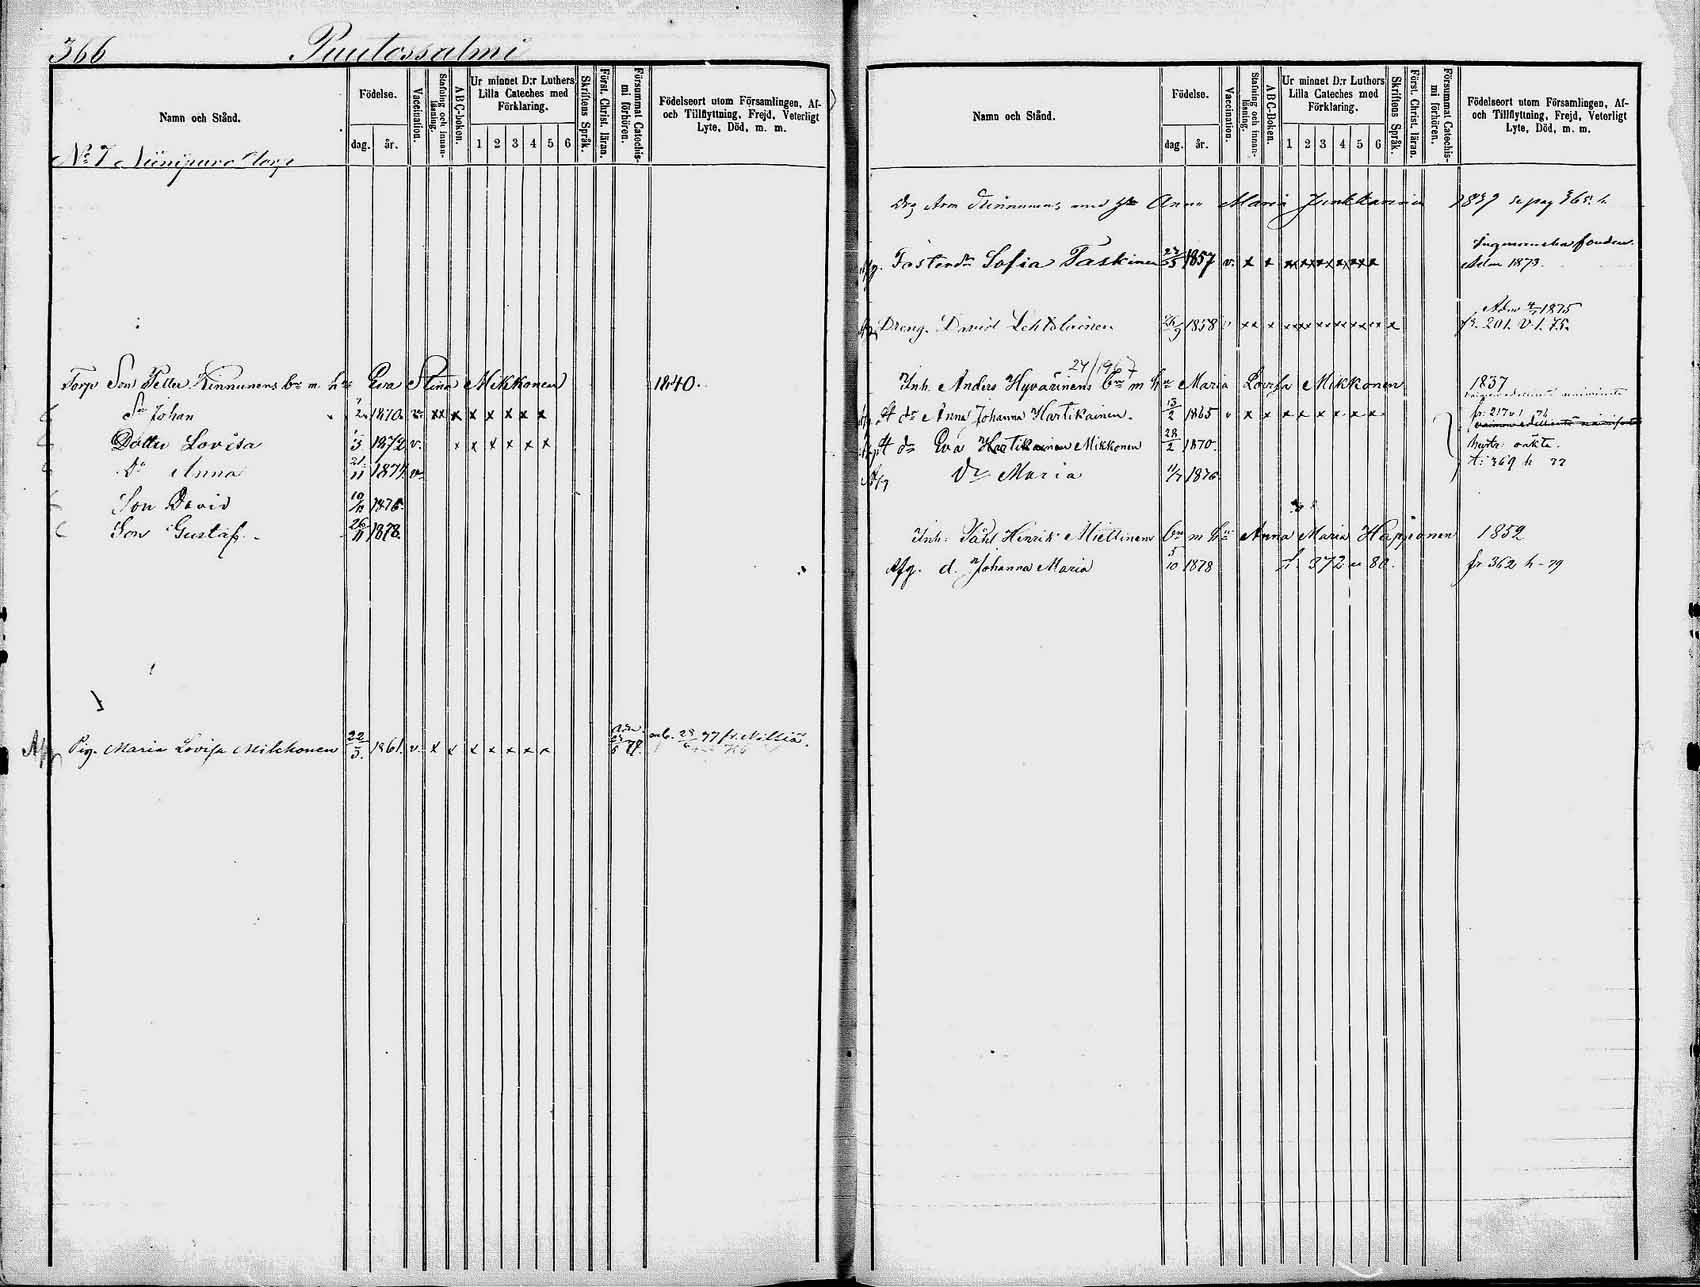 366 Puutossalmi
Namn och Stånd.
Födelse.
dag. år.
Vaccination.
Stafning och innanläsning.
ABC-boken.
Ur minnet D:r Luthers Lilla Cateches med Förklaring.
1 2 3 4 5 6
Skriftens Språk.
Först. Christ. läran.
Försummat Catechismi förhören.
Födelseort utom Församlingen, Af- och Tillflyttning, Frejd, Veterligt Lyte, Död, m. m.
No 7 Niinipuro Torp
Torp Son Petter Kinnunens bn m hu Eva Stina Mikkonen 1840.
Sn Johan 1870 x x x x x x x x
Dotter Lovisa 1/3 1872 v. x x x x x x
Do Anna 21/11 1874
Son David 10/11 1876
Son Gustaf. 26/11 1878
Afg Pig. Maria Lovisa Mikkonen 22/3. 1861. v x x x x x x x 77 fr. Nilsiä.
Namn och Stånd.
Födelse.
dag. år.
Vaccination.
Stafning och innanläsning.
ABC-Boken.
Ur minnet D:r Luthers Lilla Cateches med Förklaring.
1 2 3 4 5 6
Skriftens Språk.
Först. Christ. läran.
Försummat Catechismi förhören.
Födelseort utom Församlingen, Af- och Tillflyttning, Frejd, Veterligt Lyte, Död, m. m.
Kinnunens med Anna Maria Junkkarinen 1839 se pag 365. h
Adm 1873.
Afg. Fosterdr Sofia Taskinen 1857 v. x x x x x x x x
Adm 1875
Dreng. David Lehtolainen 1858 v x x x x x x x x x x fr. 201. v. l. 75.
24/1967
Inh. Anders Hyvärinens bn m hu Maria Lovisa Mikkonen 1837
dr Anna Johanna Hartikainen. 13/2 1865 v x x x x x x x x fr. 217 v 1 76
dr Eva Hartikainen Mikkonen 28/2 1870. oäkta.
t: 369 h 77
Afg Dr Maria 11/7 1876
Inh. Påhl Henrik Miettinens bn m hu Anna Maria Happonen 1852
Afg. d. Johanna Maria 5/10 1878 t. 372 u 80. fr 362 h - 79